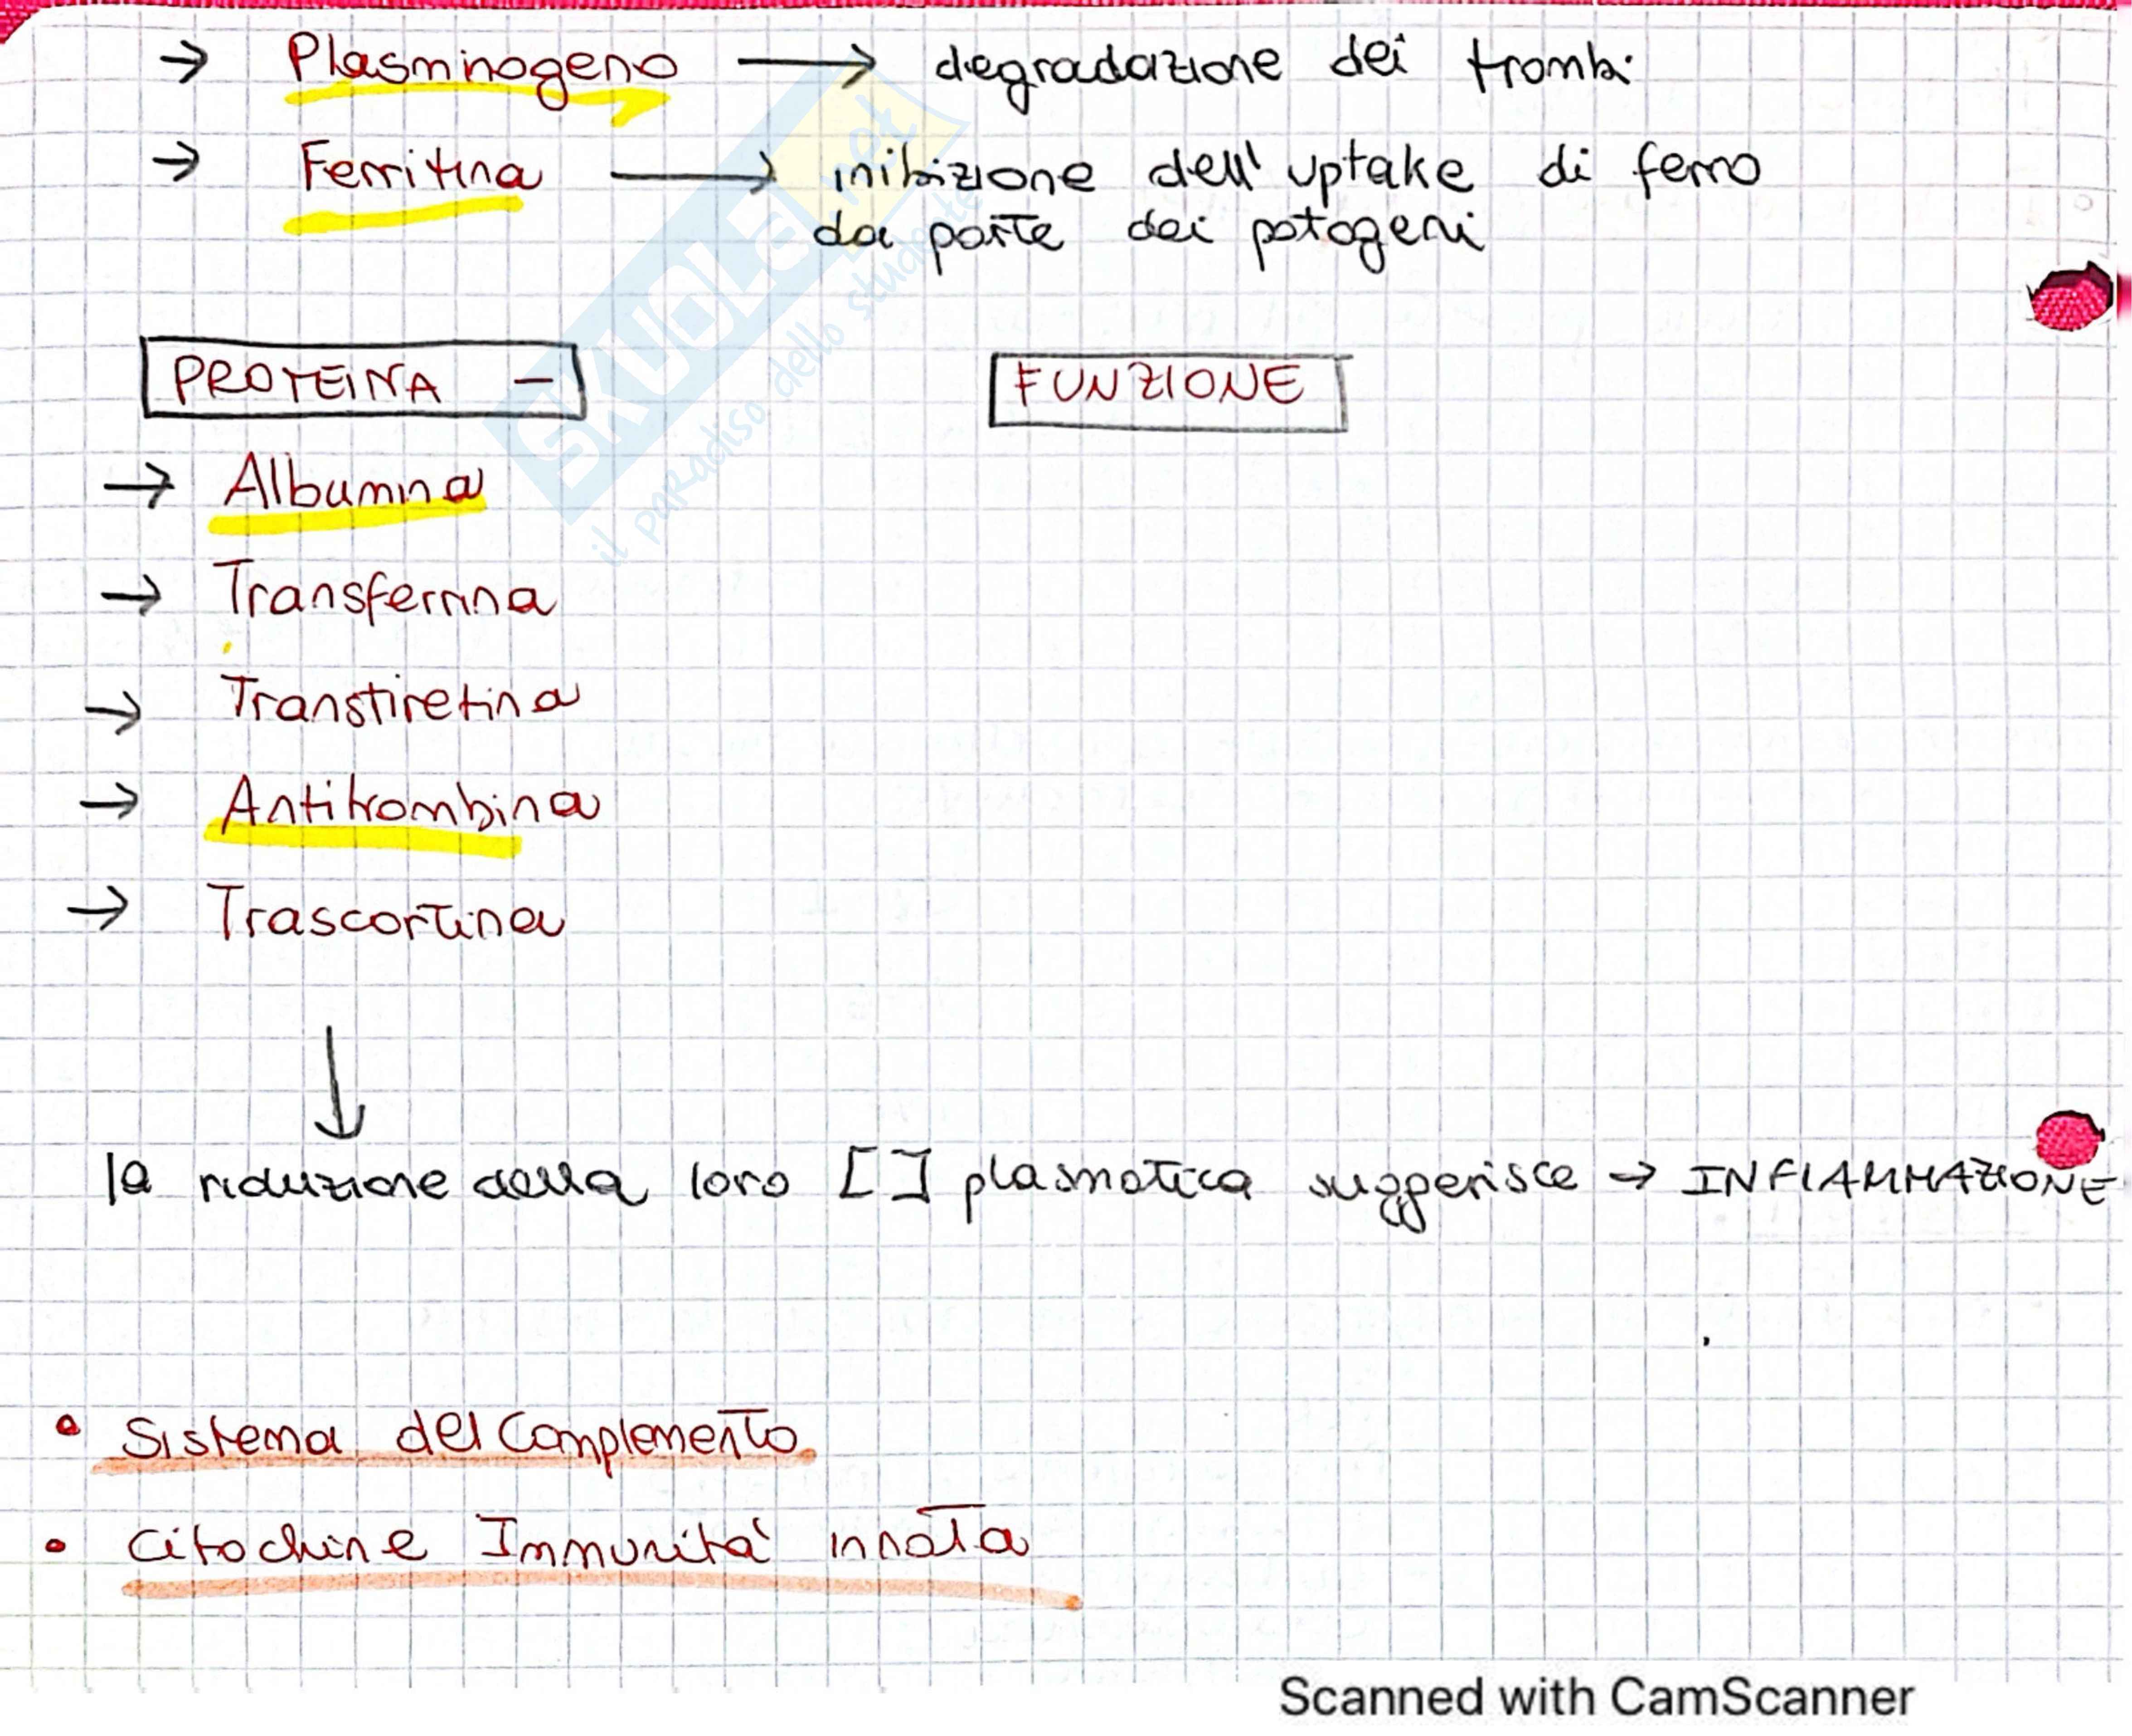 → Plasminogeno → degradazione dei trombi
→ Ferritina → inibizione dell'uptake di ferro
da parte dei patogeni
PROTEINA - FUNZIONE
→ Albumina
→ Transferrina
→ Transtiretina
→ Antitrombina
→ Trascortina
↓
la riduzione della loro [ ] plasmatica suggerisce → INFIAMMAZIONE
• Sistema del Complemento
• Citochine Immunità innata
SKUOLA.net
il paradiso dello studente
Scanned with CamScanner